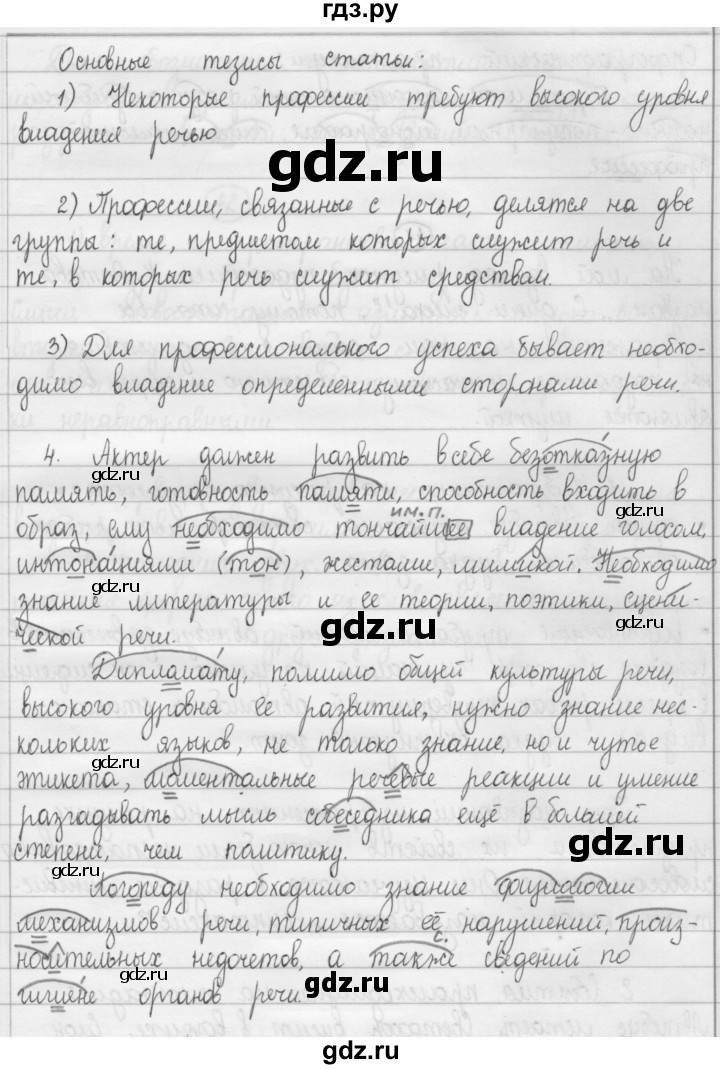 гдз.ру
Основные тезисы статьи:
1) Некоторые профессии требуют высокого уровня
владения речью
gdz.ru
2) Профессии, связанные с речью, делятся на две
группы: те, предметом которых служит речь и
те, в которых речь служит средством.
gdz.ru
3) Для профессионального успеха бывает необхо-
димо владение определенными сторонами речи.
gdz.ru
4. Актер должен развить в себе безотказную
память, готовность памяти, способность входить в
им.п.
образ, ему необходимо тончайшее владение голосом,
интонациями (тон), жестами, мимикой. Необходимо
знание литературы и ее теории, поэтики, сцени-
ческой речи.
gdz.ru
Дипломату, помимо общей культуры речи,
высокого уровня ее развития, нужно знание нес-
кольких языков, не только знание, но и чутье
этикета, моментальные речевые реакции и умение
разгадывать мысль собеседника ещё в большей
степени, чем политику.
gdz.ru
Логопеду необходимо знание физиологии
механизмов речи, типичных её нарушений, произ-
с.
носительных недочетов, а также сведений по
гигиене органов речи.
gdz.ru
gdz.ru